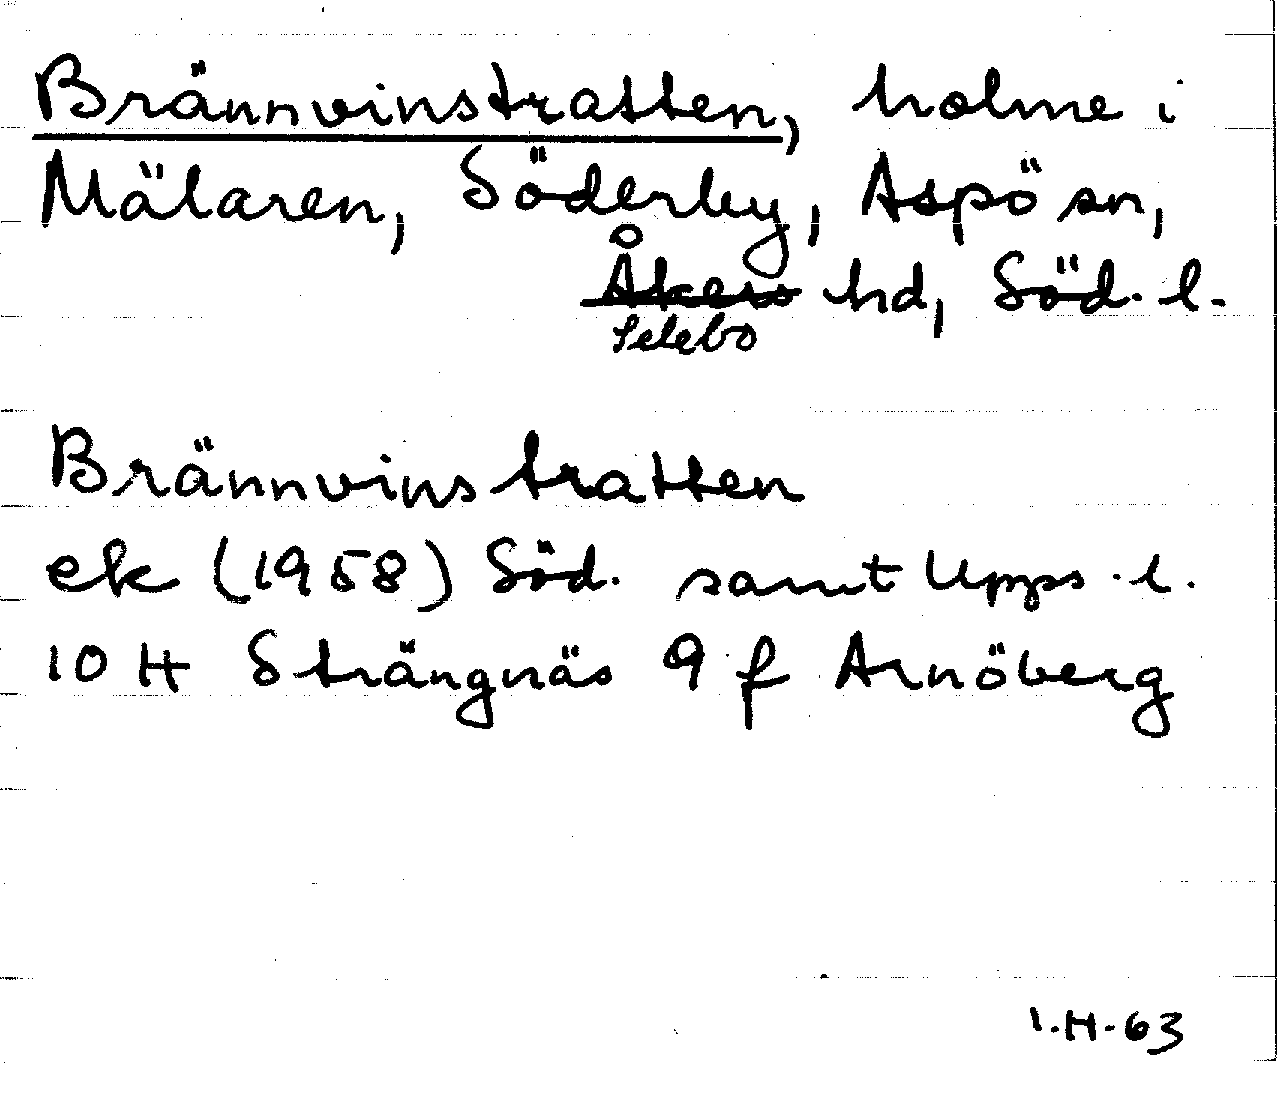 Brännvinstratten, holme i
Mälaren, Söderby, Aspö sn,
Åkers hd, Söd. l.
Selebo
Brännvinstratten
ek (1958) Söd. samt Upps. l.
10 H Strängnäs 9 f Arnöberg
I.H.63